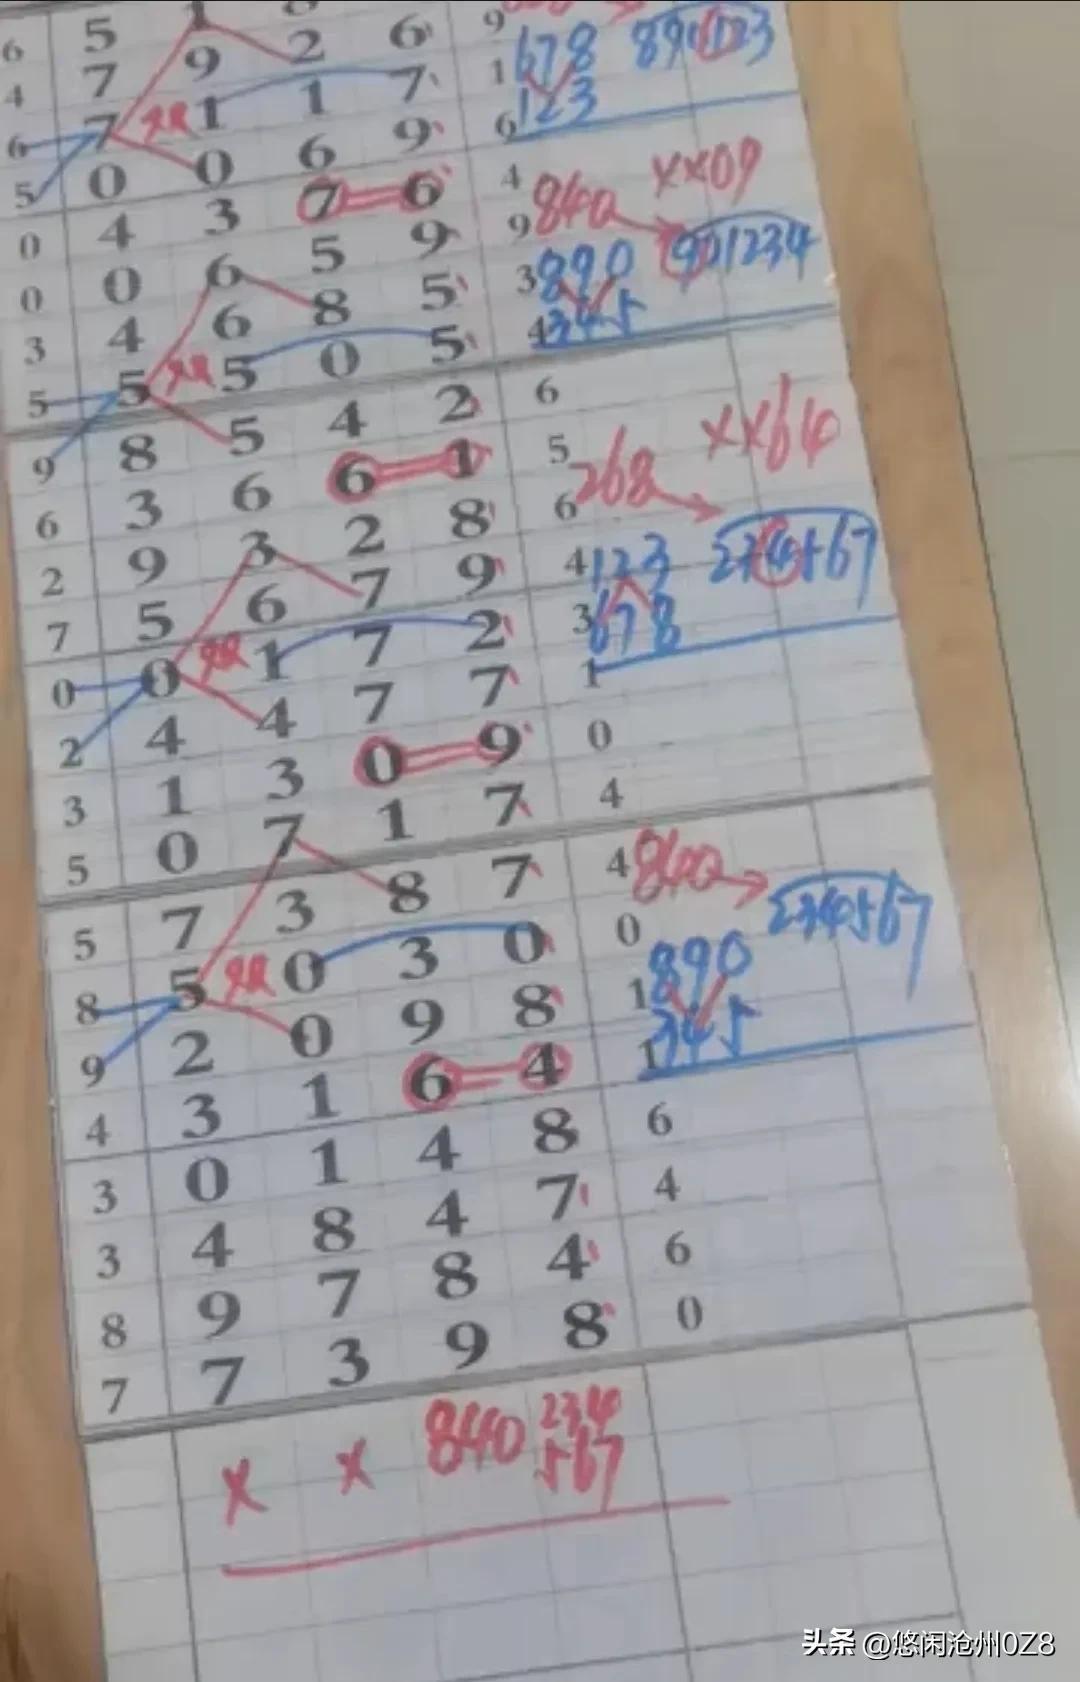 6 5 1 8
4 7 9 2 6 9 678 890123
6 7 双 1 1 7 1 123
5 0 0 6 9 6
0 4 3 7 6 4 840 XX09
0 0 6 5 9 9 890 901234
3 4 6 8 5 3 345
5 5 双 5 0 5 4
9 8 5 4 2 6
6 3 6 6 1 5 268 XX64
2 9 3 2 8 6
7 5 6 7 9 4 123 234567
0 0 双 1 7 2 3 678
2 4 4 7 7 1
3 1 3 0 9 0
5 0 7 1 7 4
5 7 3 8 7 4 840 234567
8 5 双 0 3 0 0 890
9 2 0 9 8 1 345
4 3 1 6 4 1
3 0 1 4 8 6
3 4 8 4 7 4
8 9 7 8 4 6
7 7 3 9 8 0
X X 840 234
567
头条 @悠闲沧州0Z8